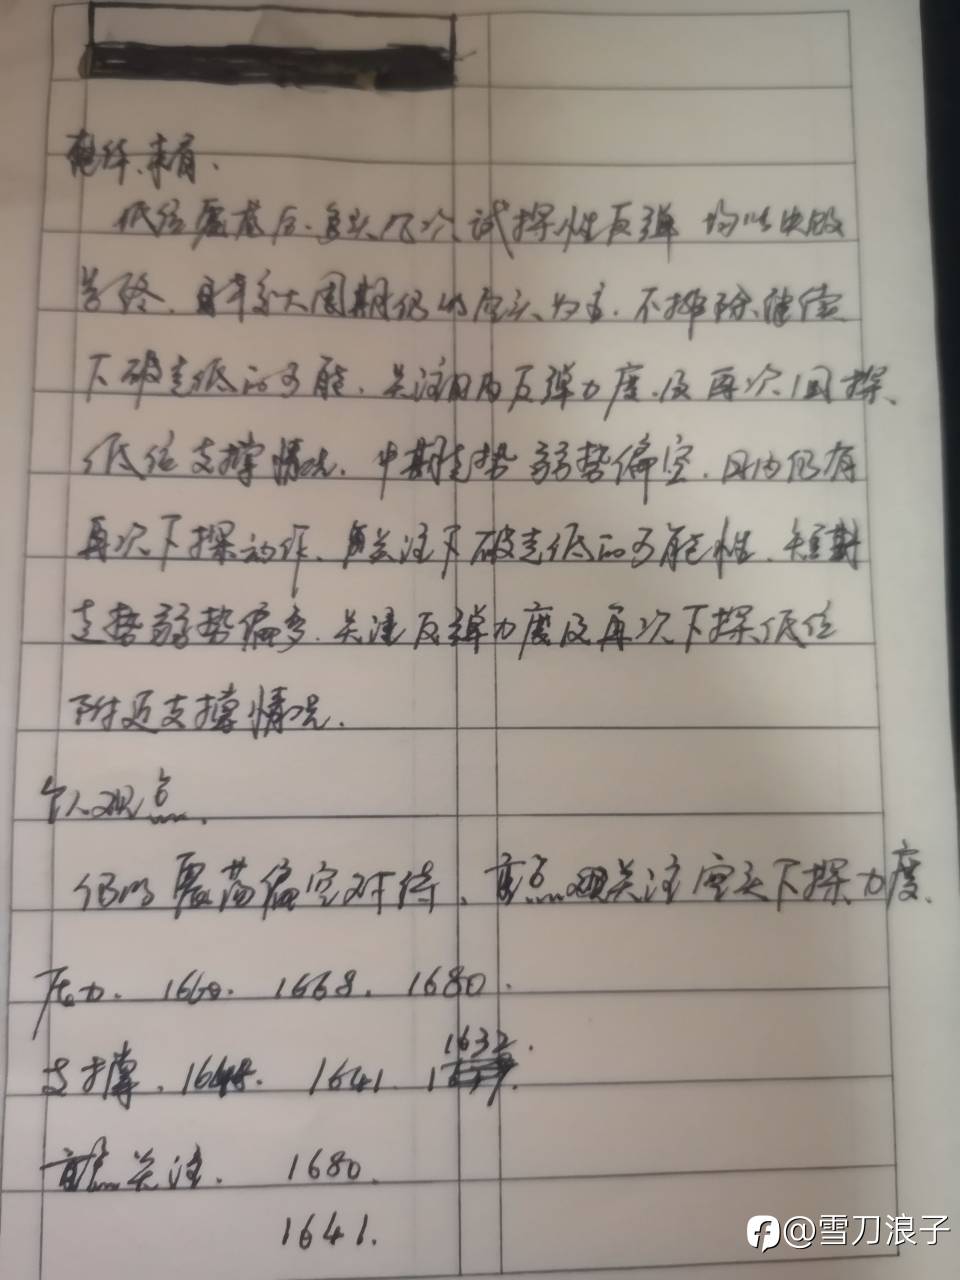 整体来看、
低位震荡后、多头几次试探性反弹 均以失败
告终、日线大周期仍以空头为主、不排除继续
下破走低的可能、关注日内反弹力度、及再次回探、
低位支撑情况、中期走势弱势偏空、日内仍有
再次下探动作、关注下破走低的可能性、短期
走势弱势偏多、关注反弹力度及再次下探低位
附近支撑情况、
个人观点、
仍以震荡偏空对待、重点关注空头下探力度、
压力、1660、1668、1680、
支撑、1648、1641、1632、
重点关注、1680、
1641、
@雪刀浪子